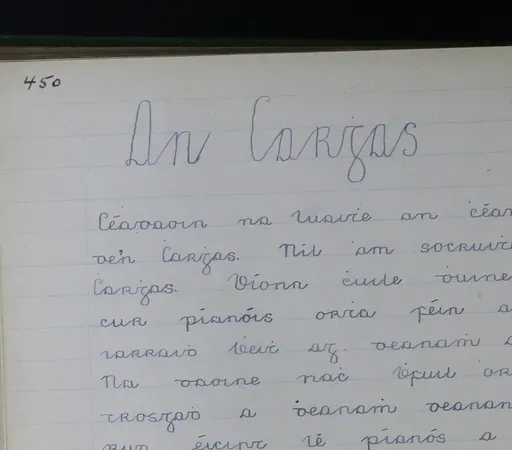 450
An Carġas
Céadaoin na luaiṫe an céad
de'n Carġas. Níl am socruiġ
Carġas. Bíonn ċuile ḋuine
cur pianóis orṫa féin a
iarraiḋ ḃeiṫ ag deanaṁ a
Na daoine naċ ḃfuil or
trosgaḋ a ḋeanaṁ deanan
rud éicint lé pianós a